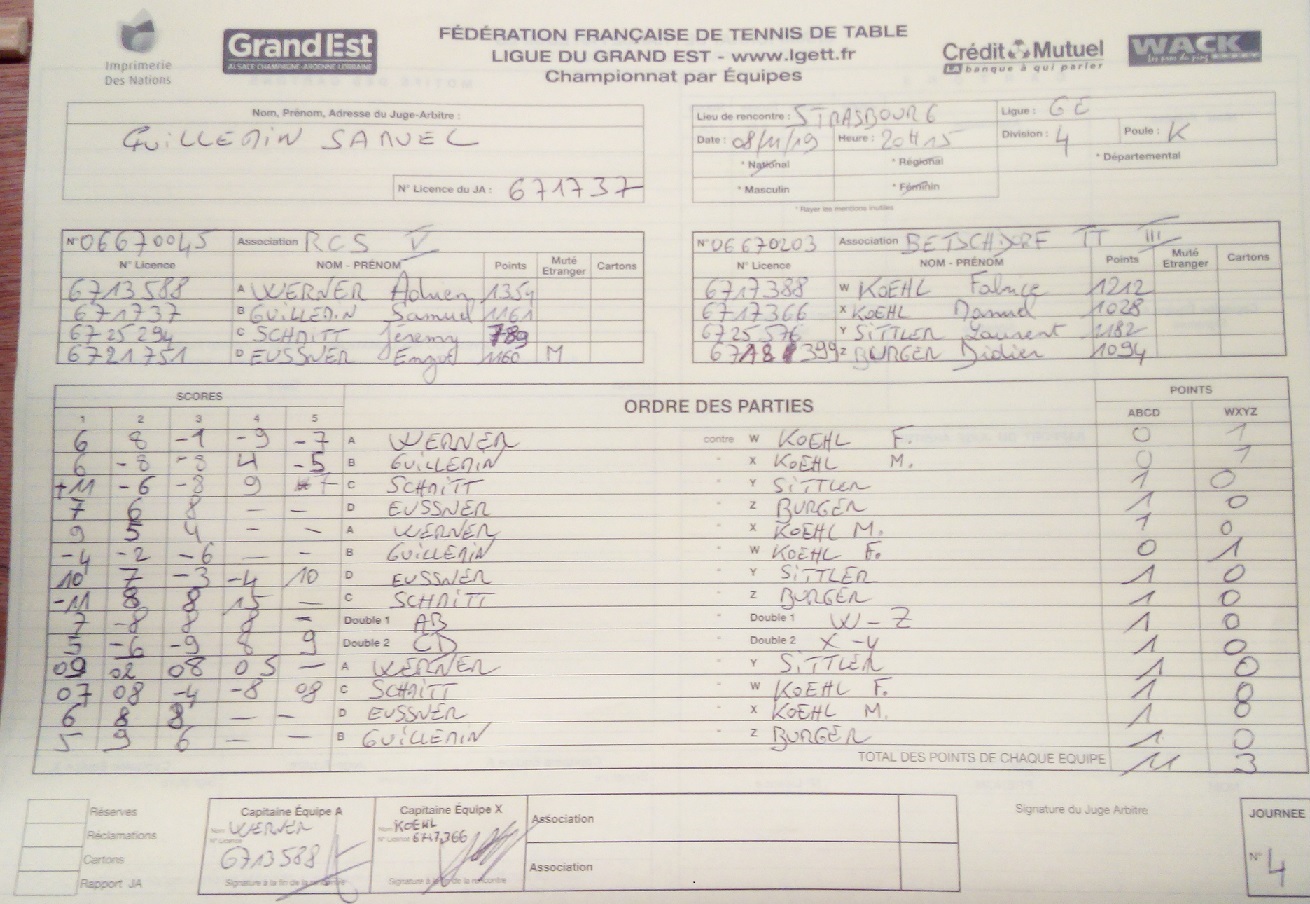 Imprimerie
Des Nations
GrandEst
ALSACE CHAMPAGNE-ARDENNE LORRAINE
FÉDÉRATION FRANÇAISE DE TENNIS DE TABLE
LIGUE DU GRAND EST - www.lgett.fr
Championnat par Équipes
Crédit Mutuel
LA banque à qui parler
WACK
Nom, Prénom, Adresse du Juge-Arbitre :
GUILLEMIN SAMUEL
N° Licence du JA : 671737
Lieu de rencontre : STRASBOURG Ligue : GE
Date : 08/11/19 Heure : 20H15 Division : 4 Poule : K
* National * Régional * Départemental
* Masculin * Féminin
* Rayer les mentions inutiles
N° 06670045 Association RCS V
N° Licence NOM - PRÉNOM Points Muté Etranger Cartons
6713588 A WERNER Adrien 1354
671737 B GUILLEMIN Samuel 1161
6725294 C SCHMITT Jérémy 789
6721751 D EUSSNER 1160 M
N° 06670203 Association BETSCHDORF TT III
N° Licence NOM - PRÉNOM Points Muté Etranger Cartons
6717388 W KOEHL Fabrice 1212
6717366 X KOEHL Manuel 1028
6725576 Y SITTLER Laurent 1182
Z BURGER Didier 1094
SCORES ORDRE DES PARTIES POINTS
1 2 3 4 5 ABCD WXYZ
6 8 -1 -9 -7 A WERNER contre W KOEHL F. 0 1
6 -8 -8 4 -5 B GUILLEMIN " X KOEHL M. 0 1
+11 -6 -8 9 7 C SCHMITT " Y SITTLER 1 0
7 6 8 — — D EUSSNER " Z BURGER 1 0
9 5 4 - - A WERNER " X KOEHL M. 1 0
-4 -2 -6 — - B GUILLEMIN " W KOEHL F. 0 1
10 7 -3 -4 10 D EUSSNER " Y SITTLER 1 0
-11 8 8 15 — C SCHMITT " Z BURGER 1 0
7 -8 8 8 - Double 1 AB " Double 1 W-Z 1 0
5 -6 -9 8 9 Double 2 CD " Double 2 X-Y 1 0
09 02 08 05 — A WERNER " Y SITTLER 1 0
07 08 -4 -8 08 C SCHMITT " W KOEHL F. 1 0
6 8 8 — - D EUSSNER " X KOEHL M. 1 0
5 9 6 — — B GUILLEMIN " Z BURGER 1 0
TOTAL DES POINTS DE CHAQUE EQUIPE 11 3
Réserves
Réclamations
Cartons
Rapport JA
Capitaine Équipe A
Nom WERNER
N° Licence
6713588
Signature à la fin de la rencontre
Capitaine Équipe X
Nom KOEHL
N° Licence 6717366
Signature à la fin de la rencontre
Association
Association
Signature du Juge Arbitre
JOURNEE
N° 4